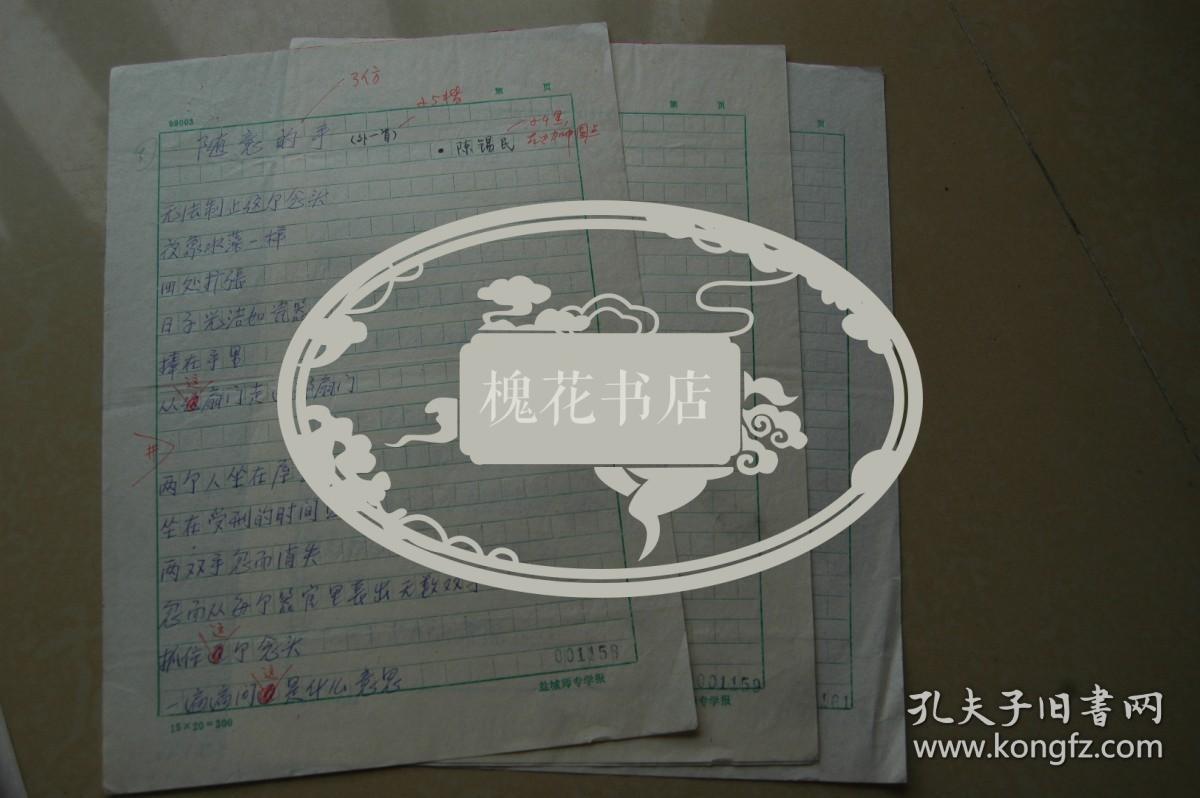 3仿
小5楷
第 页
99003
随意的手 (外一首)
• 陈锡民
无法制止这个念头
夜象水藻一样
四处扩张
日子光洁如瓷器
捧在手里
从这扇门走 扇门
两个人坐在
坐在受刑的时间
两双手忽而消失
忽而从每个器官里长出无数双
抓住这个念头
一遍遍问这是什么意思
001158
盐城师专学报
15×20=300
第 页
001159
师专学报
页
槐花书店
孔夫子旧书网
www.kongfz.com